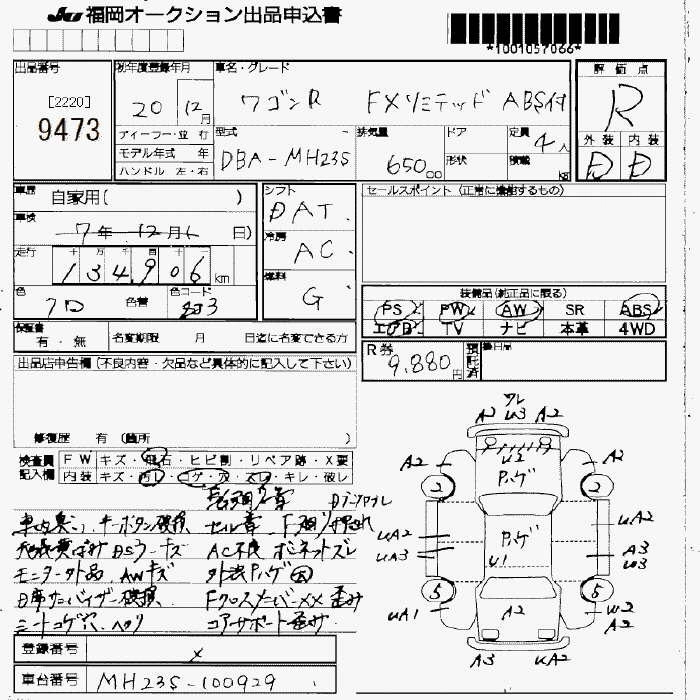 JU 福岡オークション出品申込書
*1001057066*
出品番号 初年度登録年月 車名・グレード 評価点
[2220]
9473
20 12月 ワゴンR FXリミテッド ABS付 R
ディーラー・並行 型式 排気量 ドア 定員 4人 外装 内装
モデル年式 年 DBA-MH23S 650cc 形状 積載 kg D D
ハンドル 左・右
車歴 自家用( ) シフト DAT セールスポイント (正常に機能するもの)
車検 7年 12月 日) 冷房 AC
走行 十 万 千 百 十
134906 km
燃料 G
色 クロ 色替 色コード ZJ3
装備品(純正品に限る)
PS PW AW SR ABS
エアB TV ナビ 本革 4WD
保証書 有・無 名変期限 月 日迄に名変できる方
R券 9,880円 預託済 後日品
出品店申告欄(不良内容・欠品など具体的に記入して下さい)
修復歴 有 (箇所 )
検査員記入欄 FW キズ・飛石・ヒビ割・リペア跡・X要
内装 キズ・汚レ・コゲ・穴・スレ・キレ・破レ
車内臭い キーボタン破損 セル音
AC不良 ボンネットズレ
モニター外品 AWキズ 外装Pハゲ
日席サンバイザー破損 FクロスメンバーXX歪み
シートコゲ穴 ヘタリ コアサポート歪み
ワレ
A2 U3 A2
A2 U2 A2
Pハゲ
2 2
UA2 UA2
UA3 Pハゲ A3
U1 U3
5 5
UA1 A2 U2
A2
A3 UA2
登録番号 X
車台番号 MH23S-100929